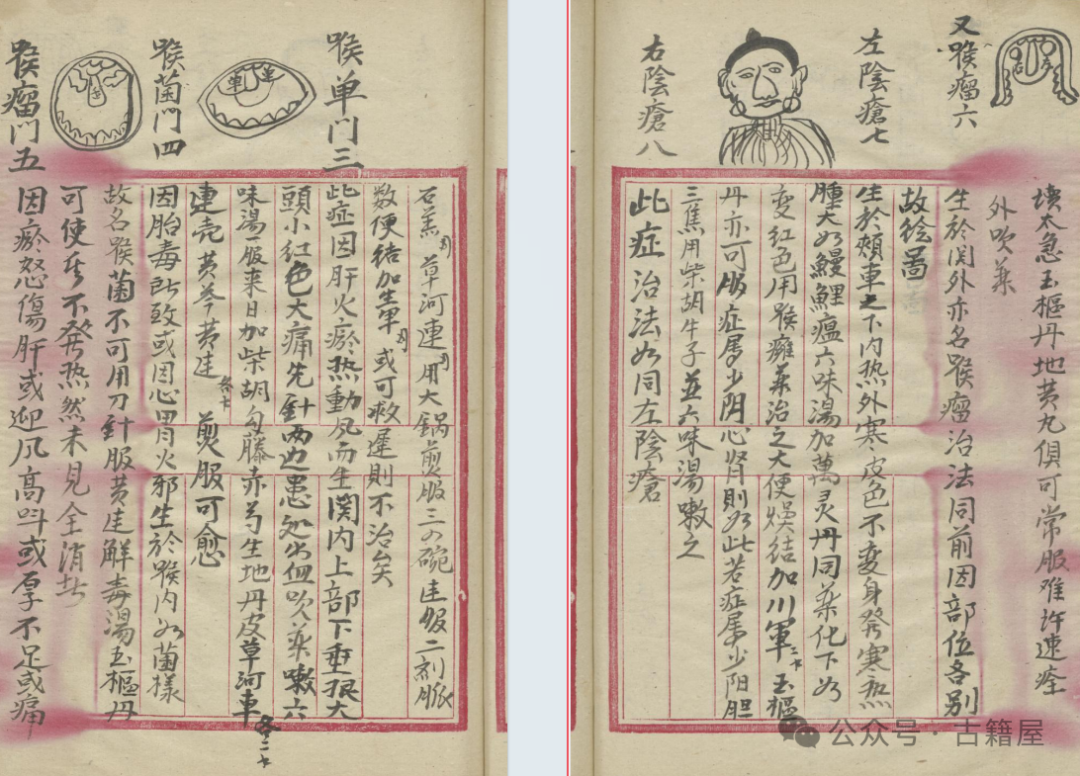 喉单門三
石羔 草河連 用大鍋煎服三四碗連服二剂脈
数便结加生軍 或可救遲則不治矣
此症因肝火瘀热動风而生関内上部下垂根大
頭小红色大痛先針两边患処出血吹药嗽六
味湯一服来日加柴胡勾藤赤芍生地丹皮草河車
連壳黄芩黄連 煎服可愈
喉菌門四
因胎毒所致或因心胃火邪生於喉内如菌樣
故名喉菌不可用刀針服黄連解毒湯玉樞丹
可使 不發热然未見全消者
喉瘤門五
因瘀怒傷肝或迎风高叫或厚不足或痛
潰太急玉樞丹地黄丸俱可常服难許速痊
外吹药
又喉瘤六
生於関外亦名喉瘤治法同前因部位各别
故绘圖
左陰瘡七
生於頰車之下内热外寒皮色不变身發寒热
腫大如鰻鯉瘟六味湯加萬灵丹同药化下如
变红色用喉癰药治之大便燥结加川軍二卜玉樞
丹亦可服症属少阴心肾則如此若症属少阳胆
三焦用柴胡牛子並六味湯嗽之
右陰瘡八
此症治法如同左陰瘡
公众号·古籍屋